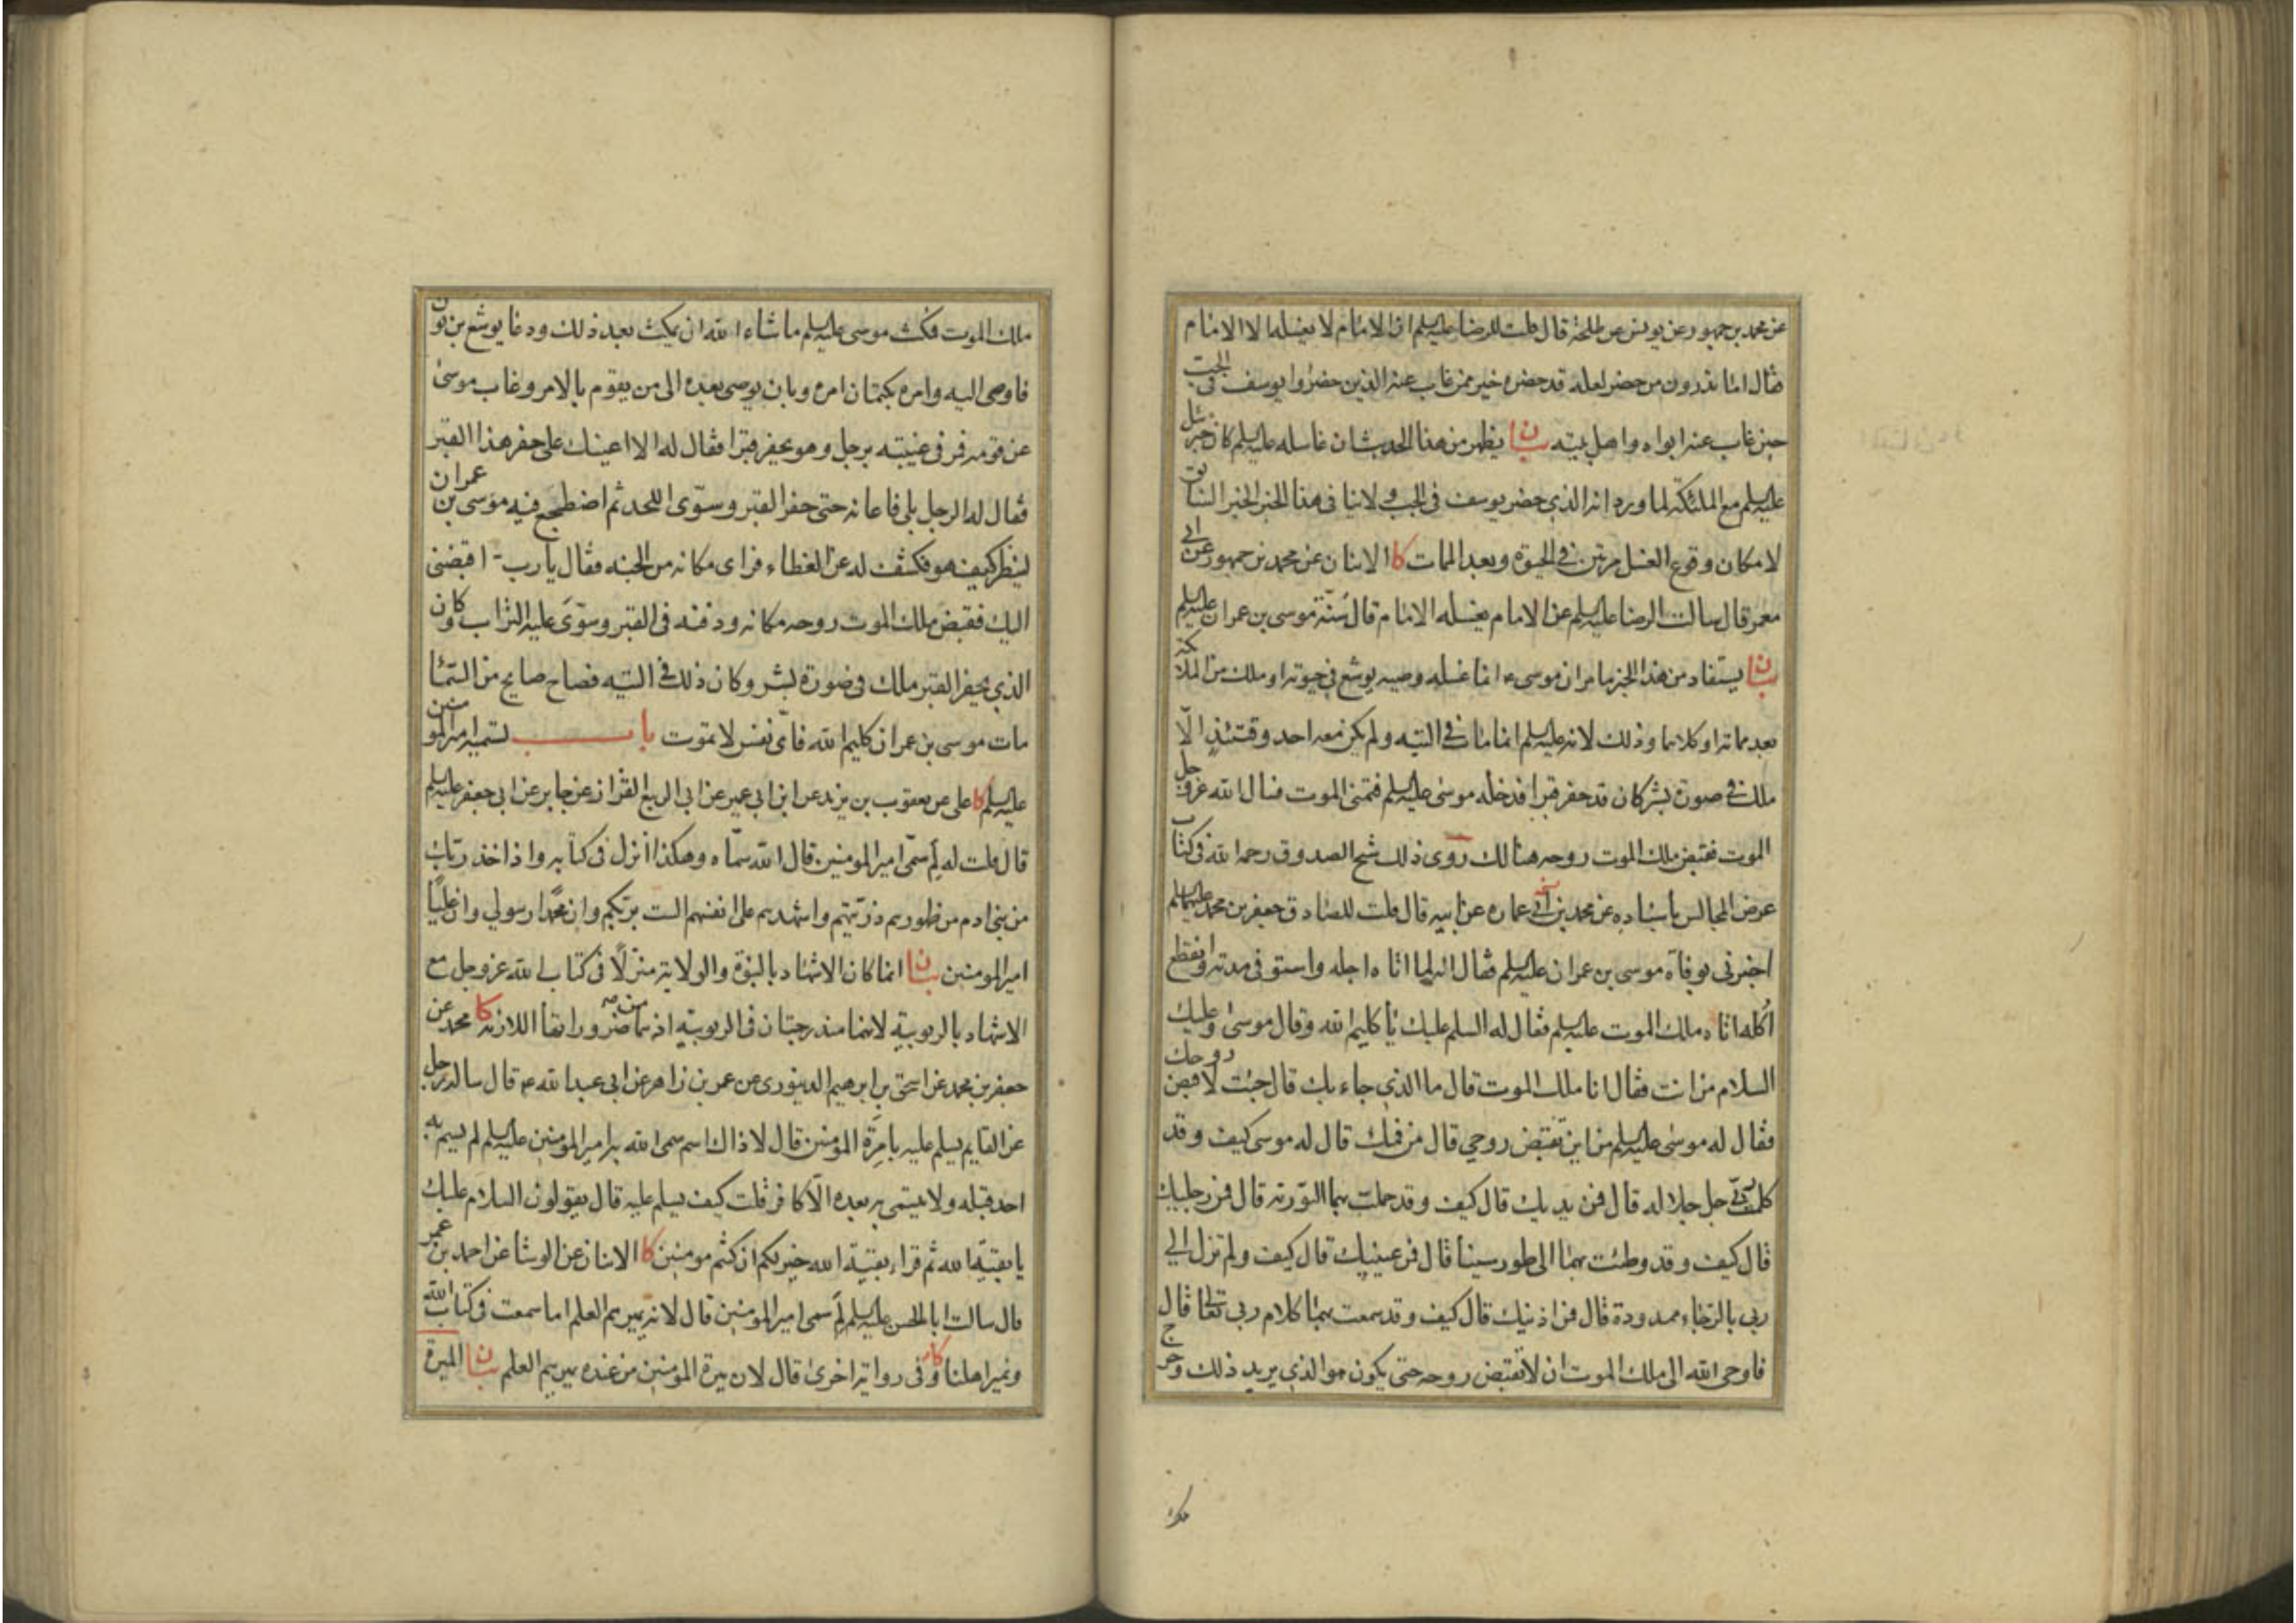 عن محمد بن جمهور عن يونس عن طلحة قال قلت للرضا عليه السلم ان الامام لا يغسله الا الامام
فقال اما تدرون من حضر لعله قد حضره خير ممن غاب عنه الذين حضروا يوسف في الجب
حين غاب عنه ابواه واهل بيته بيان يظهر من هذا الحديث ان غاسله عليه السلم كان جبرئيل
عليه السلم مع الملئكة لما ورد انه الذي حضر يوسف في الجب ولا ينافى هذا الخبر الخبر السابق
لامكان وقوع الغسل مرتين في الحيوة وبعد الممات كا الاثنان عن محمد بن جمهور عن ابي
معمر قال سالت الرضا عليه السلم عن الامام يغسله الامام قال سنة موسى بن عمران عليه السلم
بيان يستفاد من هذا الخبر مامر ان موسى ع انما غسله وصيه يوشع في حيوته او ملك من الملائكة
بعد مماته او كلاهما وذلك لانه عليه السلم انما مات في التيه ولم يكن معه احد وقتئذ الّا
ملك في صورة بشر كان قد حفر قبرا فدخله موسى عليه السلم فتمنى الموت فسال الله عز وجل
الموت فقبض ملك الموت روحه هنالك روى ذلك شيخ الصدوق رحمه الله في كتاب
عرض المجالس باسناده عن محمد بن ابي عماره عن ابيه قال قلت للصادق جعفر بن محمد عليهما السلم
اخبرني بوفاة موسى بن عمران عليه السلم فقال انه لما اتاه اجله واستوفى مدته وانقطع
اكله اتاه ملك الموت عليه السلم فقال له السلم عليك يا كليم الله وقال موسى وعليك
السلام من انت فقال انا ملك الموت قال ما الذي جاء بك قال جئت لاقبض روحك
فقال له موسى عليه السلم من اين تقبض روحي قال من فمك قال له موسى كيف وقد
كلمت ربي جل جلاله قال فمن يديك قال كيف وقد حملت بهما التورية قال فمن رجليك
قال كيف وقد وطئت بهما الى طور سينا قال فمن عينيك قال كيف ولم تزل الى
ربي بالرجاء ممدودة قال فمن اذنيك قال كيف وقد سمعت بهما كلام ربي تعالى قال
فاوحى الله الى ملك الموت ان لا تقبض روحه حتى يكون هو الذي يريد ذلك وخرج
ملك الموت فمكث موسى عليه السلم ما شاء الله ان يمكث بعد ذلك ودعا يوشع بن نون
فاوصى اليه وامره بكتمان امره وبان يوصى بعده الى من يقوم بالامر وغاب موسى
عن قومه فمر في غيبته برجل وهو يحفر قبرا فقال له الا اعينك على حفر هذا القبر
فقال له الرجل بلى فاعانه حتى حفر القبر وسوّى اللحد ثم اضطجع فيه موسى بن عمران
لينظر كيف هو فكشف له عن الغطاء فراى مكانه من الجنه فقال يا رب اقبضنى
اليك فقبض ملك الموت روحه مكانه ودفنه في القبر وسوّى عليه التراب وكان
الذي يحفر القبر ملك في صورة بشر وكان ذلك في التيه فصاح صايح من السما
مات موسى بن عمران كليم الله فاىّ نفس لا تموت باب تسميه امير المومنين
عليه السلم كا على عن يعقوب بن يزيد عن ابن ابي عمير عن ابي الربيع القزاز عن جابر عن ابي جعفر عليه السلم
قال قلت له لم سمّى امير المومنين قال الله سمّاه وهكذا انزل في كتابه واذ اخذ ربك
من بنى ادم من ظهورهم ذرّيتهم واشهدهم على انفسهم الست بربّكم وان محمّدا رسولي وان عليًا
امير المومنين بيان انما كان الاشهاد بالنبوة والولاية منزلًا في كتاب الله عز وجل مع
الاشهاد بالربوبية لانهما مندرجتان في الربوبيه اذ هما من ضروراتها اللازمة كا محمد عن
جعفر بن محمد عن اسحق بن ابرهيم الدينورى عن عمر بن زاهر عن ابي عبد الله ع قال ساله رجل
عن القايم يسلم عليه بامرة المومنين قال لا ذاك اسم سمى الله به امير المومنين عليه السلم لم يسم به
احد قبله ولا يتسمى به بعده الّا كافر قلت كيف يسلم عليه قال يقولون السلام عليك
يا بقيّة الله ثم قراء بقيّة الله خير لكم ان كنتم مومنين كا الاثنان عن الوشا عن احمد بن عمر
قال سالت ابا الحسن عليه السلم لم سمى امير المومنين قال لانه يميرهم العلم اما سمعت في كتاب الله
ونمير اهلنا كا وفى رواية اخرى قال لان ميرة المومنين من عنده يميرهم العلم بيان الميرة